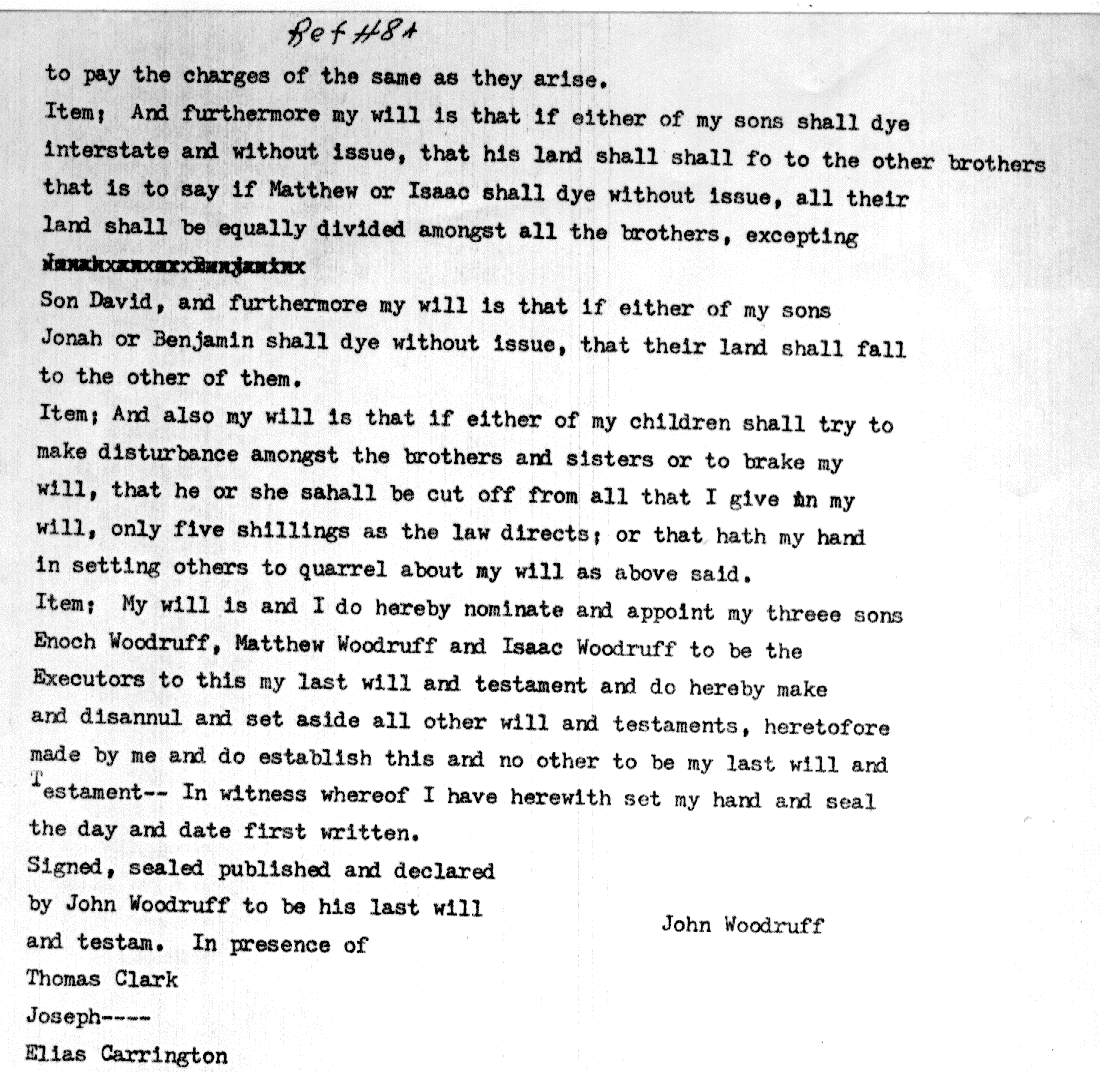 Ref #8A
to pay the charges of the same as they arise.
Item; And furthermore my will is that if either of my sons shall dye
interstate and without issue, that his land shall shall fo to the other brothers
that is to say if Matthew or Isaac shall dye without issue, all their
land shall be equally divided amongst all the brothers, excepting
Son David, and furthermore my will is that if either of my sons
Jonah or Benjamin shall dye without issue, that their land shall fall
to the other of them.
Item; And also my will is that if either of my children shall try to
make disturbance amongst the brothers and sisters or to brake my
will, that he or she sahall be cut off from all that I give in my
will, only five shillings as the law directs; or that hath my hand
in setting others to quarrel about my will as above said.
Item; My will is and I do hereby nominate and appoint my threee sons
Enoch Woodruff, Matthew Woodruff and Isaac Woodruff to be the
Executors to this my last will and testament and do hereby make
and disannul and set aside all other will and testaments, heretofore
made by me and do establish this and no other to be my last will and
Testament-- In witness whereof I have herewith set my hand and seal
the day and date first written.
Signed, sealed published and declared
by John Woodruff to be his last will
and testam. In presence of
John Woodruff
Thomas Clark
Joseph----
Elias Carrington